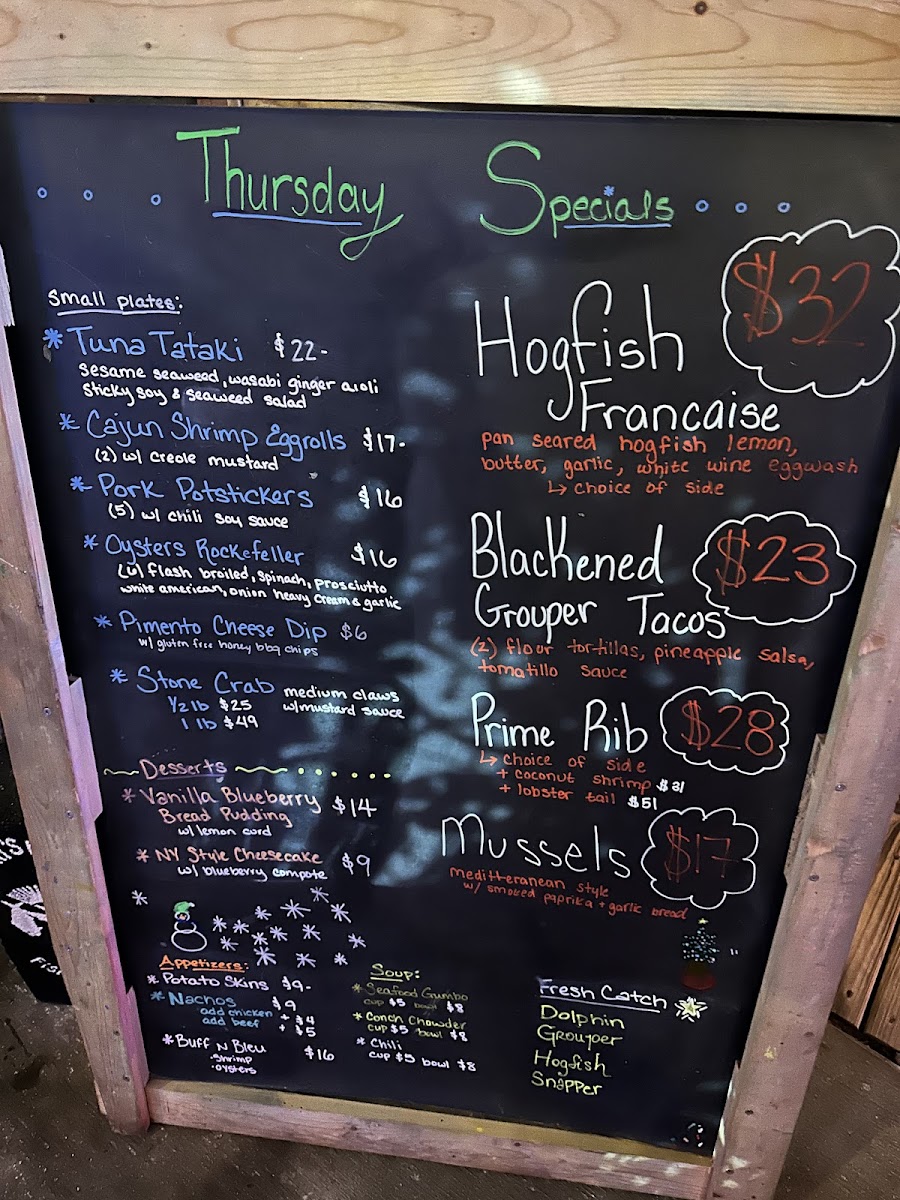 Thursday Specials
small plates:
* Tuna Tataki $22-
sesame seaweed, wasabi ginger aioli
sticky soy & seaweed salad
* Cajun Shrimp Eggrolls $17-
(2) w/ creole mustard
* Pork Potstickers $16
(5) w/ chili soy sauce
* Oysters Rockefeller $16
(6) flash broiled, spinach, prosciutto
white american, onion heavy cream & garlic
* Pimento Cheese Dip $6
w/ gluten free honey bbq chips
* Stone Crab medium claws
1/2 lb $25 w/mustard sauce
1 lb $49
Desserts
* Vanilla Blueberry $14
Bread Pudding
w/ lemon curd
* NY Style Cheesecake $9
w/ blueberry compote
Hogfish $32
Francaise
pan seared hogfish lemon,
butter, garlic, white wine eggwash
↳ choice of side
Blackened $23
Grouper Tacos
(2) flour tortillas, pineapple salsa,
tomatillo sauce
Prime Rib $28
↳ choice of side
+ coconut shrimp $31
+ lobster tail $51
Mussels $17
mediterranean style
w/ smoked paprika + garlic bread
Appetizers:
* Potato Skins $9-
* Nachos $9
add chicken + $4
add beef + $5
* Buff N Bleu $16
.shrimp
.oysters
Soup:
* Seafood Gumbo
cup $5 bowl $8
* Conch Chowder
cup $5 bowl $8
* Chili
cup $5 bowl $8
Fresh Catch
Dolphin
Grouper
Hogfish
Snapper